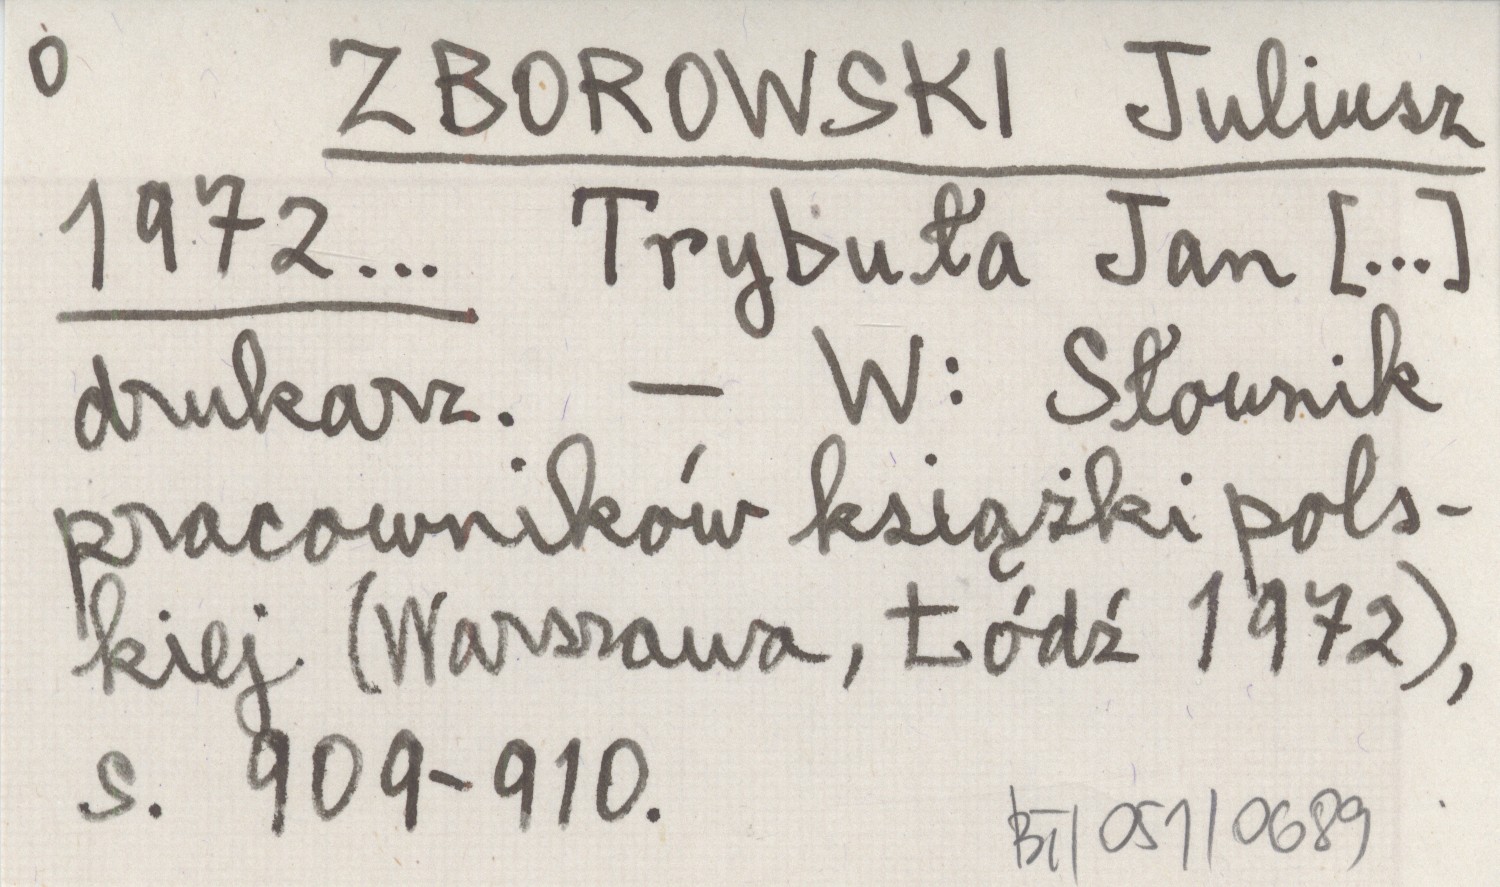 0 ZBOROWSKI Juliusz
1972... Trybuła Jan [...]
drukarz. – W: Słownik
pracowników książki pols-
kiej (Warszawa, Łódź 1972),
s. 909-910.
BT/051/0689